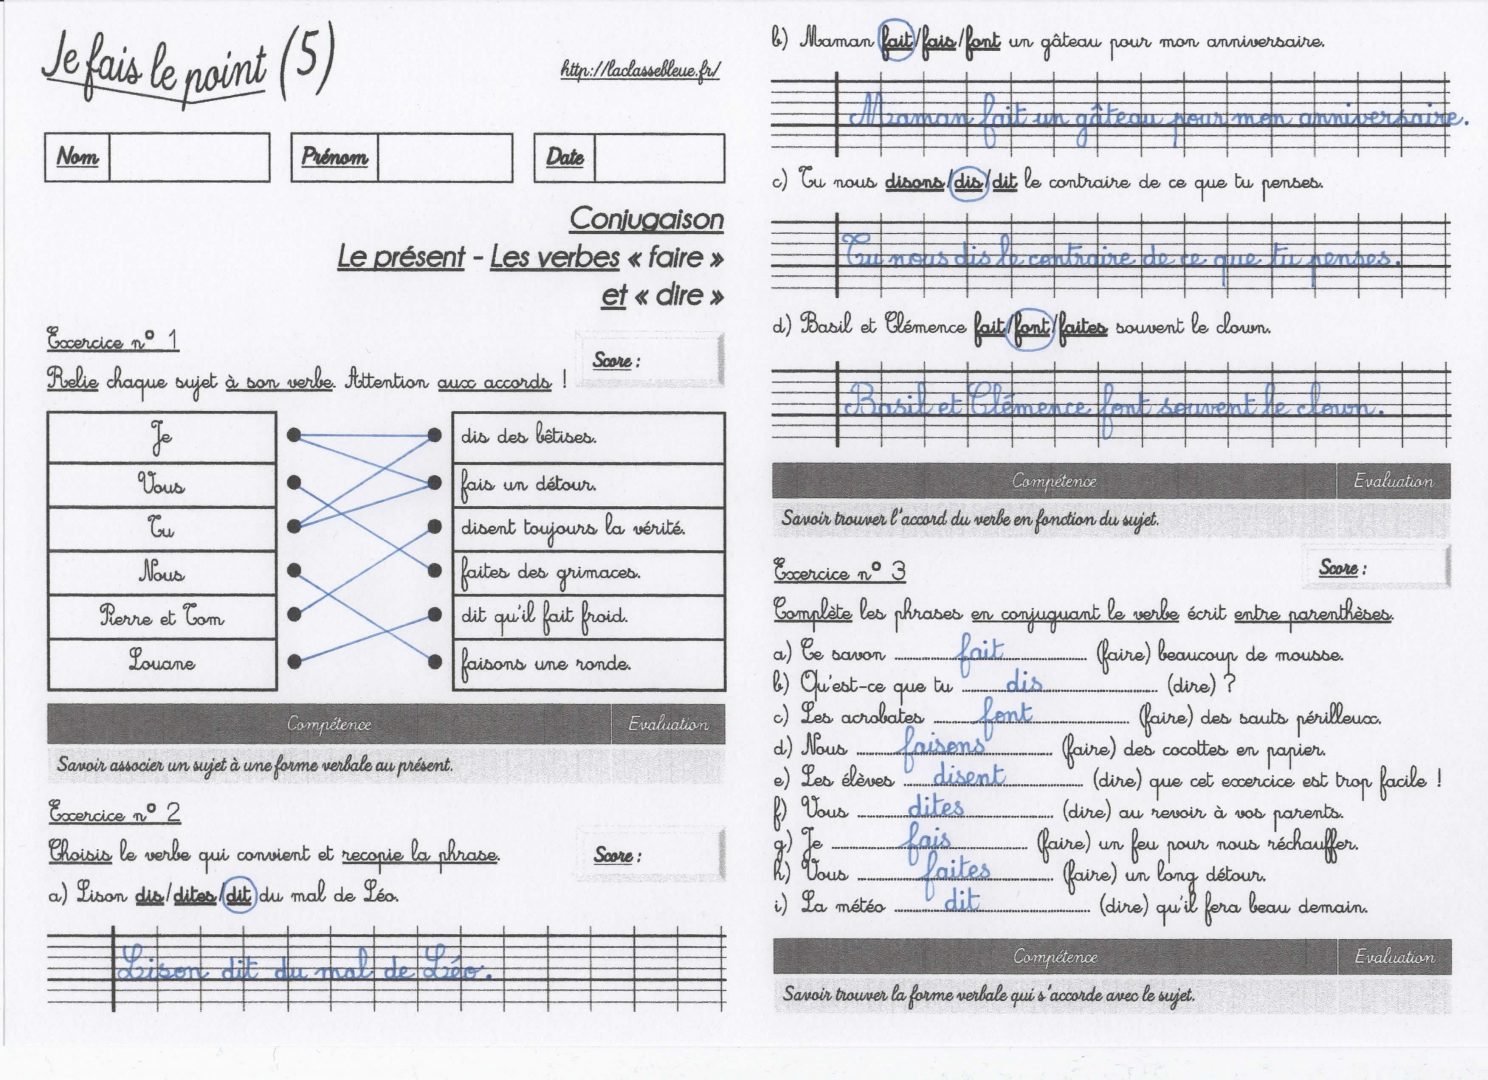 Je fais le point (5)
http://laclassebleue.fr/
Nom
Prénom
Date
Conjugaison
Le présent - Les verbes « faire »
et « dire »
Exercice n° 1
Score :
Relie chaque sujet à son verbe. Attention aux accords !
Je
dis des bêtises.
Vous
fais un détour.
Tu
disent toujours la vérité.
Nous
faites des grimaces.
Pierre et Tom
dit qu'il fait froid.
Louane
faisons une ronde.
Compétence
Evaluation
Savoir associer un sujet à une forme verbale au présent.
Exercice n° 2
Choisis le verbe qui convient et recopie la phrase.
Score :
a) Lison dis/dites/dit du mal de Léo.
Lison dit du mal de Léo.
b) Maman fait/fais/font un gâteau pour mon anniversaire.
Maman fait un gâteau pour mon anniversaire.
c) Tu nous disons/dis/dit le contraire de ce que tu penses.
Tu nous dis le contraire de ce que tu penses.
d) Basil et Clémence fait/font/faites souvent le clown.
Basil et Clémence font souvent le clown.
Compétence
Evaluation
Savoir trouver l'accord du verbe en fonction du sujet.
Exercice n° 3
Score :
Complète les phrases en conjuguant le verbe écrit entre parenthèses.
a) Ce savon fait (faire) beaucoup de mousse.
b) Qu'est-ce que tu dis (dire) ?
c) Les acrobates font (faire) des sauts périlleux.
d) Nous faisons (faire) des cocottes en papier.
e) Les élèves disent (dire) que cet exercice est trop facile !
f) Vous dites (dire) au revoir à vos parents.
g) Je fais (faire) un feu pour nous réchauffer.
h) Vous faites (faire) un long détour.
i) La météo dit (dire) qu'il fera beau demain.
Compétence
Evaluation
Savoir trouver la forme verbale qui s'accorde avec le sujet.